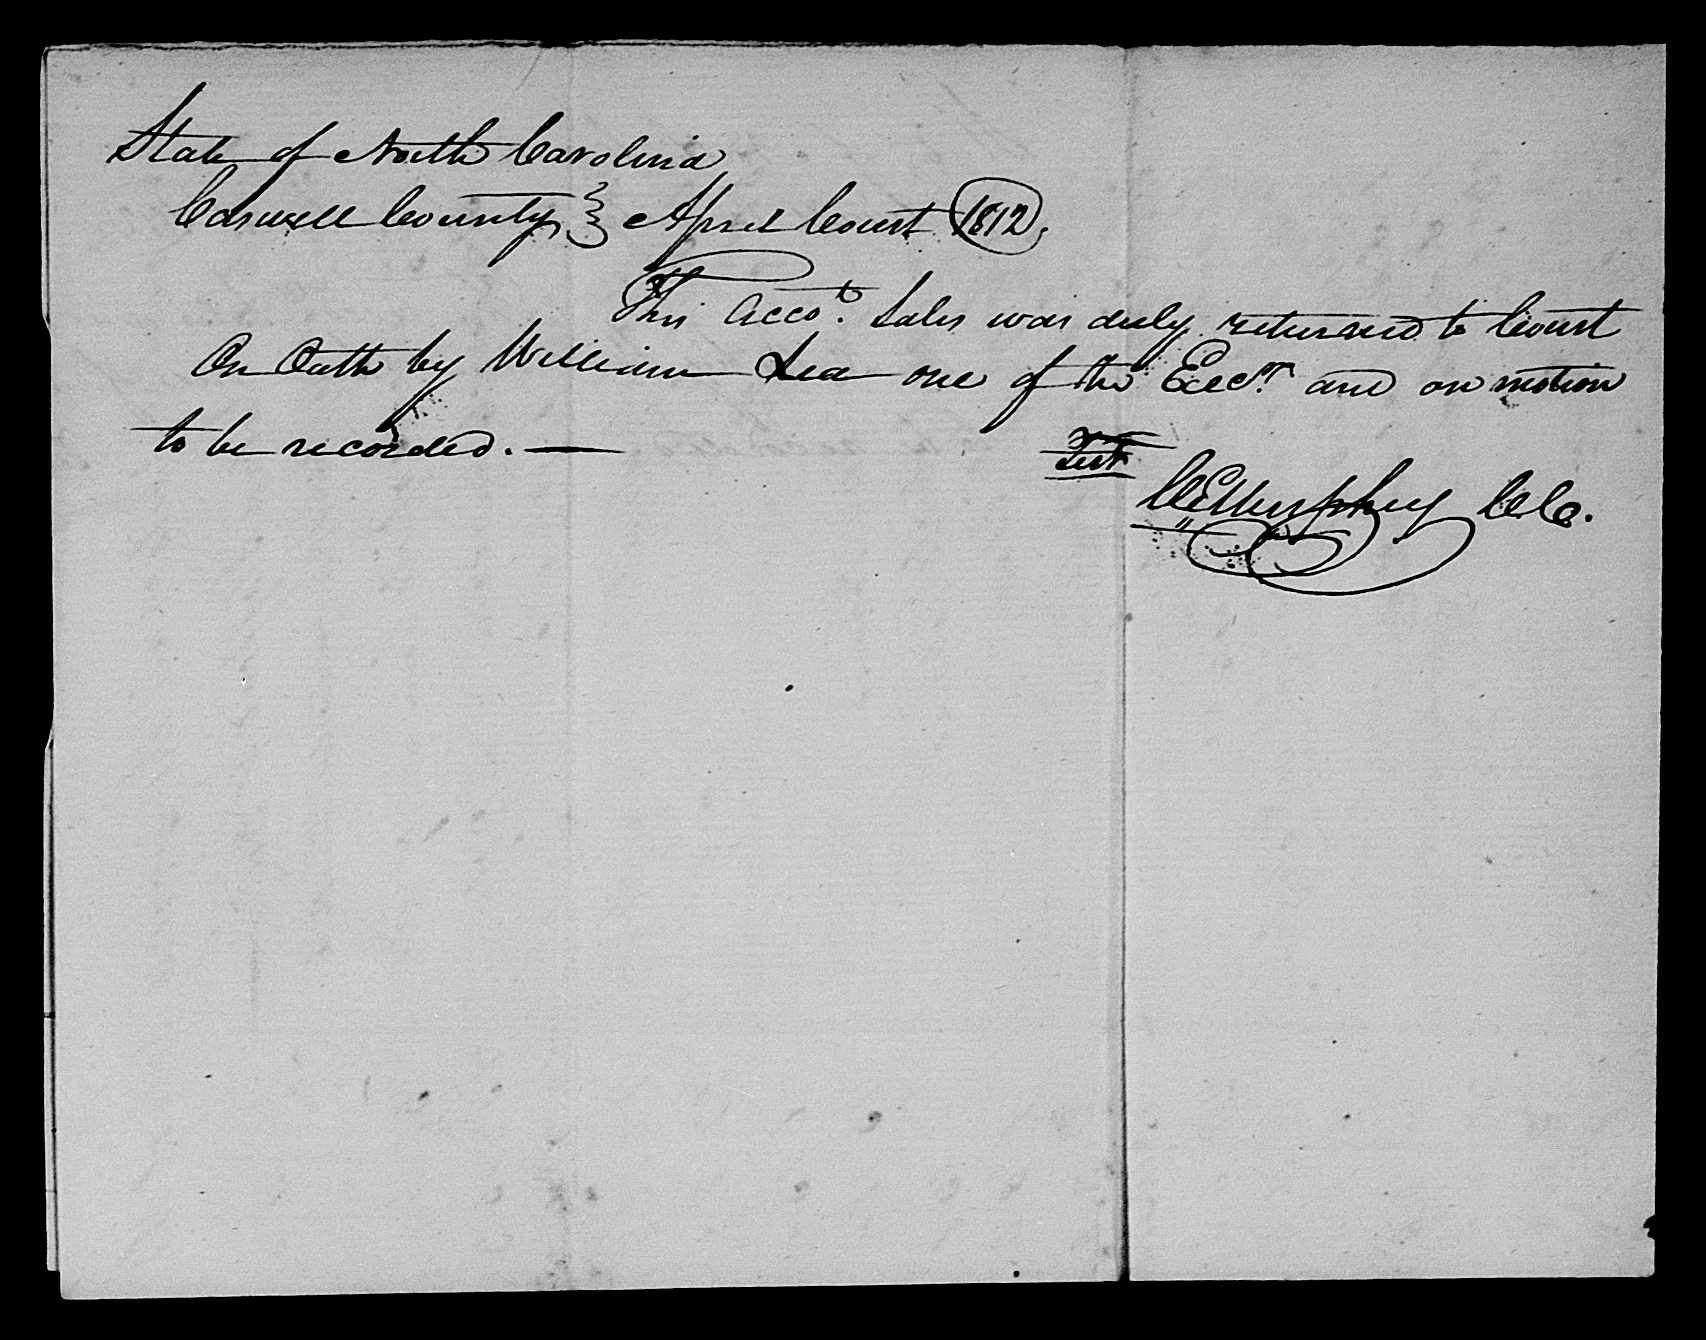 State of North Carolina
Caswell County } April Court 1812.
This Acco.t Sales was duly returned to Court
On Oath by William Lea one of the Execr. and on motion
to be recorded. —
Test
A E Murphey CC.